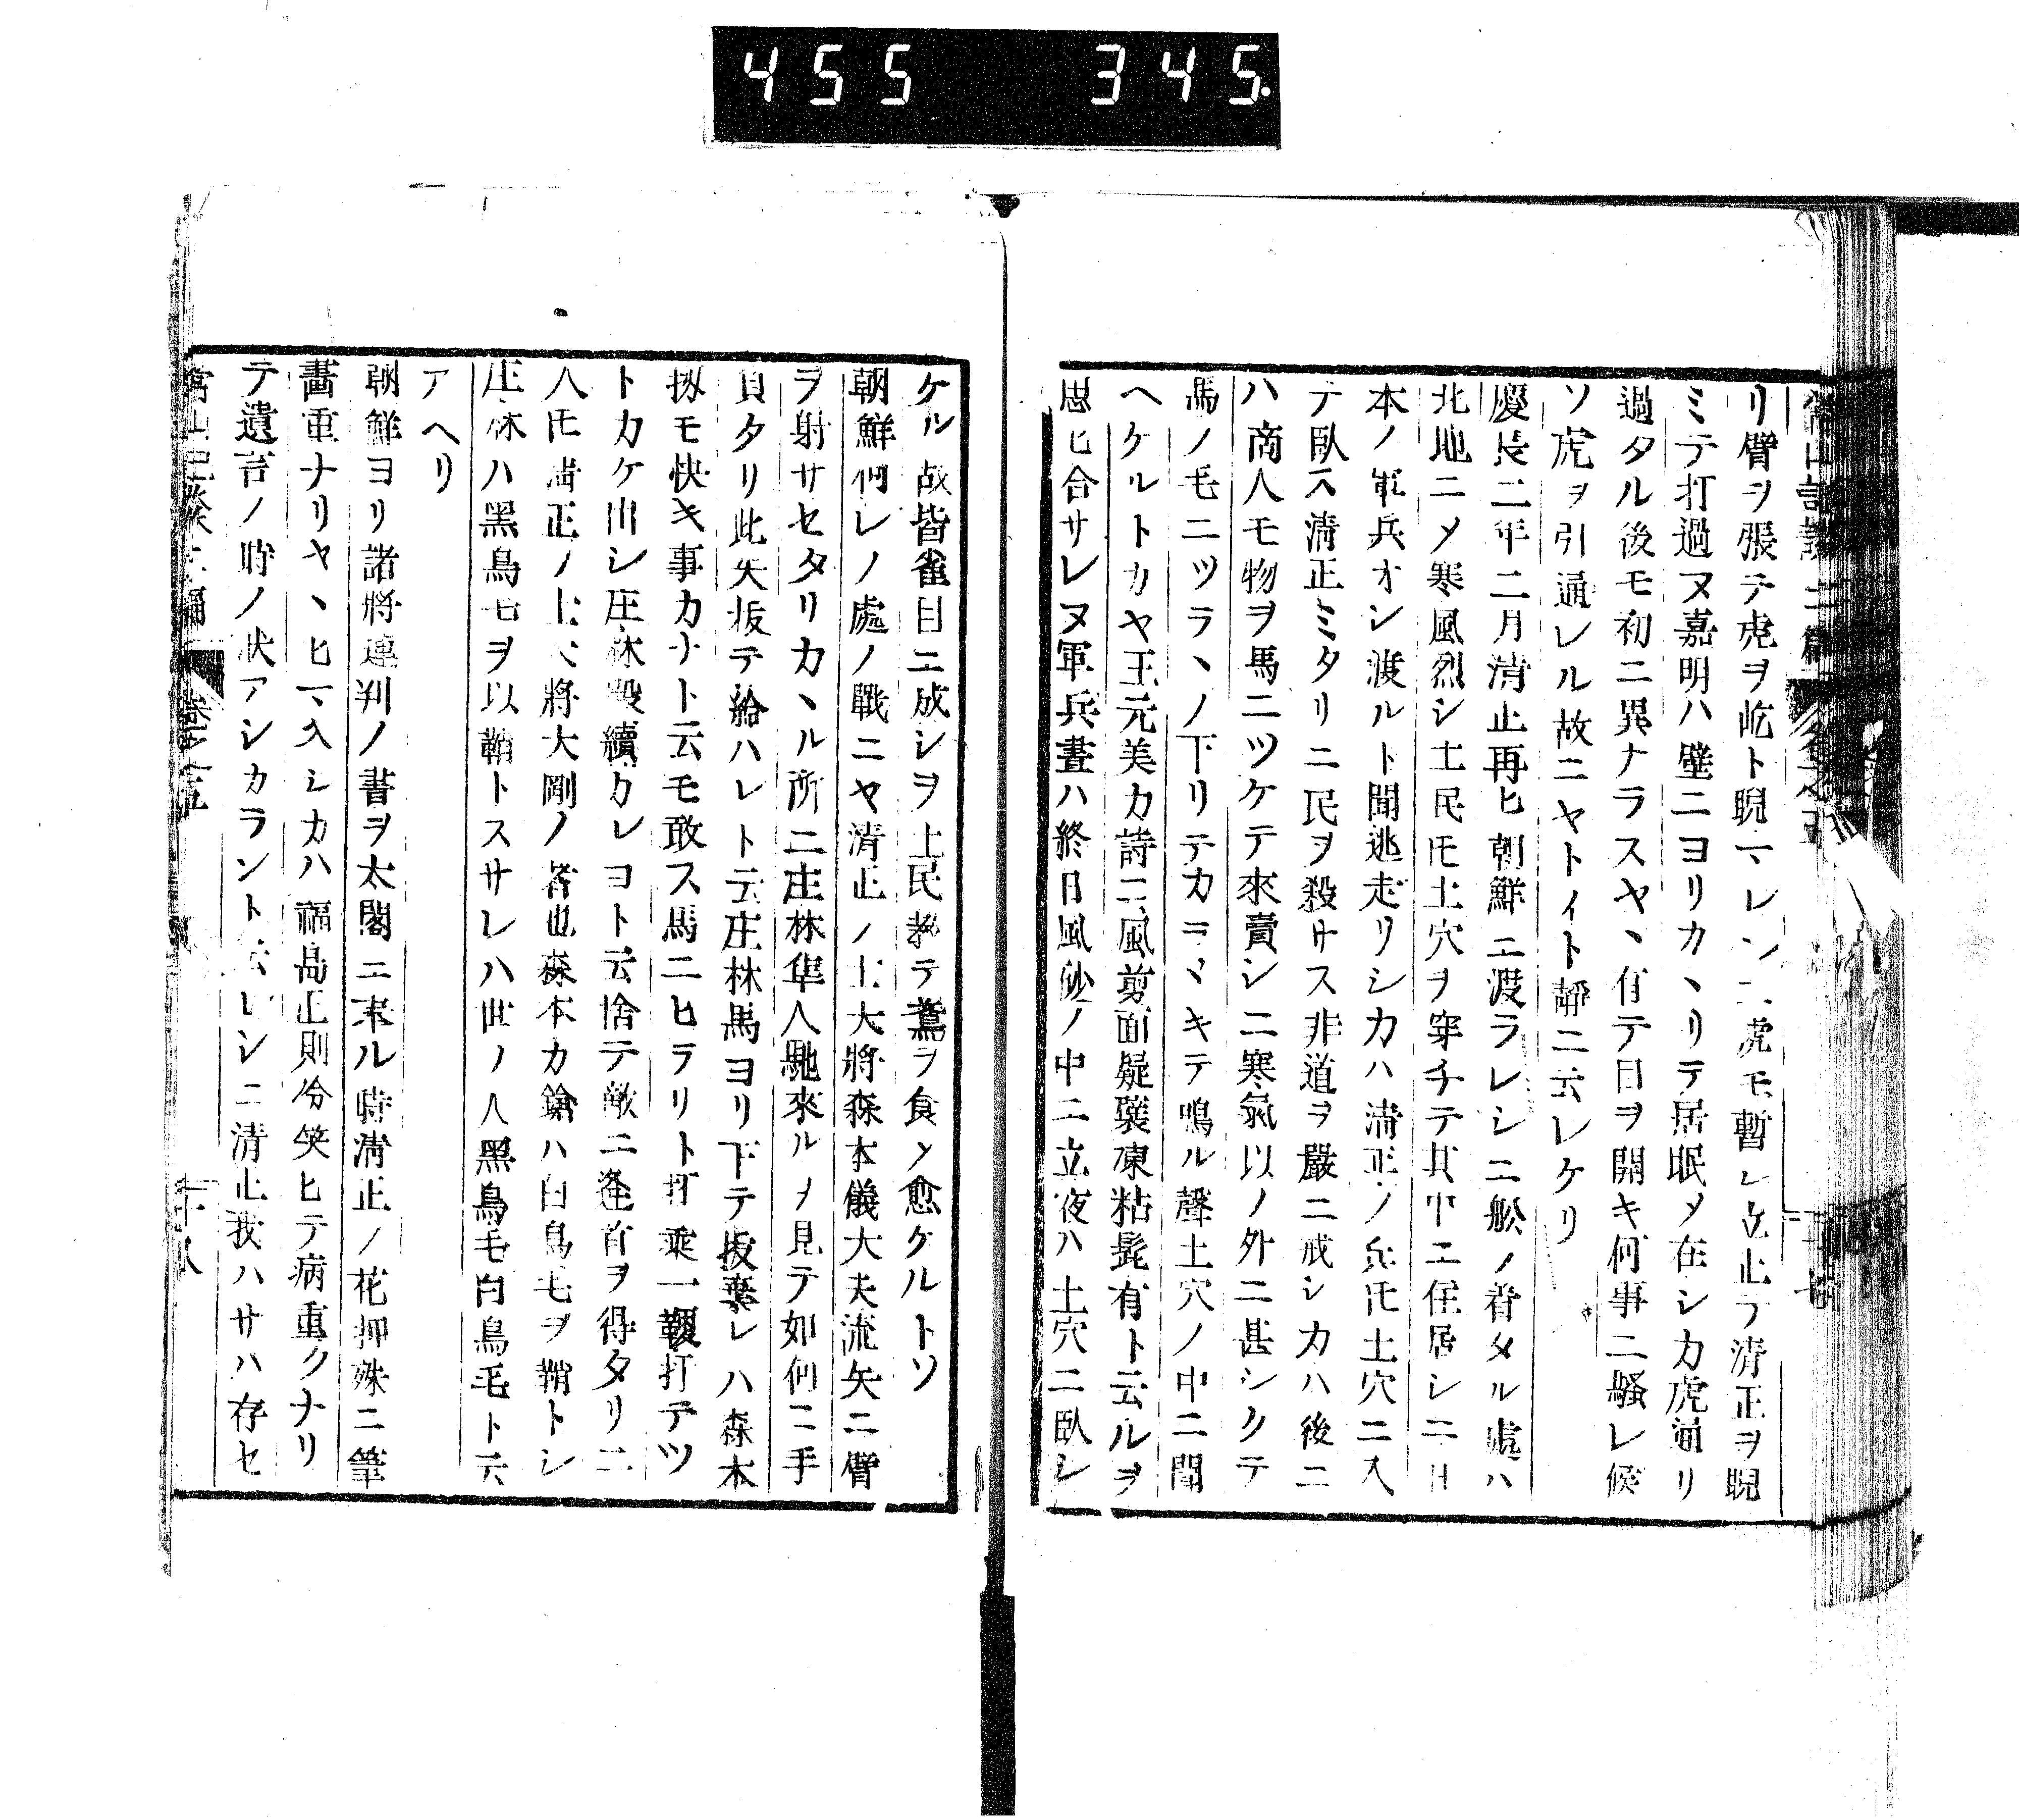 455 345.
リ臂ヲ張テ虎ヲ屹ト睨マレシニ虎モ暫レ立止テ清正ヲ睨
ミテ打過ヌ嘉明ハ壁ニヨリカヽリテ居眠メ在シカ虎通リ
過タル後モ初ニ異ナラスヤヽ有テ目ヲ開キ何事ニ騒レ候
ソ虎ヲ引通レル故ニヤトイト静ニ云レケリ
慶長二年二月清正再ヒ朝鮮ニ渡ラレシニ舩ノ着タル處ハ
北地ニメ寒風烈シ土民モ土穴ヲ穿チテ其中ニ住居シニ日
本ノ軍兵オシ渡ルト聞逃走リシカハ清正ノ兵𪜈土穴ニ入
テ臥ス清正ミタリニ民ヲ殺サス非道ヲ嚴ニ戒シカハ後ニ
ハ商人モ物ヲ馬ニツケテ來賣シニ寒氣以ノ外ニ甚シクテ
馬ノ毛ニツラヽノ下リテカラメキテ鳴ル聲土穴ノ中ニ聞
ヘケルトカヤ王元美カ詩ニ風剪面凝襲凍粘髭有ト云ルヲ
思ヒ合サレヌ軍兵晝ハ終日風砂ノ中ニ立夜ハ土穴ニ臥シ
ケル故皆雀目ニ成シヲ土民教テ鵞ヲ食メ愈ケルトソ
朝鮮何レノ處ノ戰ニヤ清正ノ士大將森本儀大夫流矢ニ臂
ヲ射サセタリカヽル所ニ庄林隼人馳來ルメ見テ如何ニ手
負タリ此矢抜テ給ハレト云庄林馬ヨリ下テ抜棄レハ森本
扨モ快キ事カナト云モ敢ス馬ニヒラリト打乗一鞭打テツ
トカケ出シ庄林殿續カレヨト云捨テ敵ニ逢首ヲ得タリ二
人𪜈清正ノ士大將大剛ノ者也森本カ鎗ハ白鳥毛ヲ鞘トシ
庄林ハ黑鳥毛ヲ以鞘トスサレハ世ノ人黑鳥毛白鳥毛ト云
アヘリ
朝鮮ヨリ諸將連判ノ書ヲ太閤ニ奉ル時清正ノ花押殊ニ筆
畵重ナリヤヽヒマ入シカハ福島正則冷笑ヒテ病重クナリ
テ遺言ノ時ノ状アシカラント云レシニ清正我ハサハ存セ